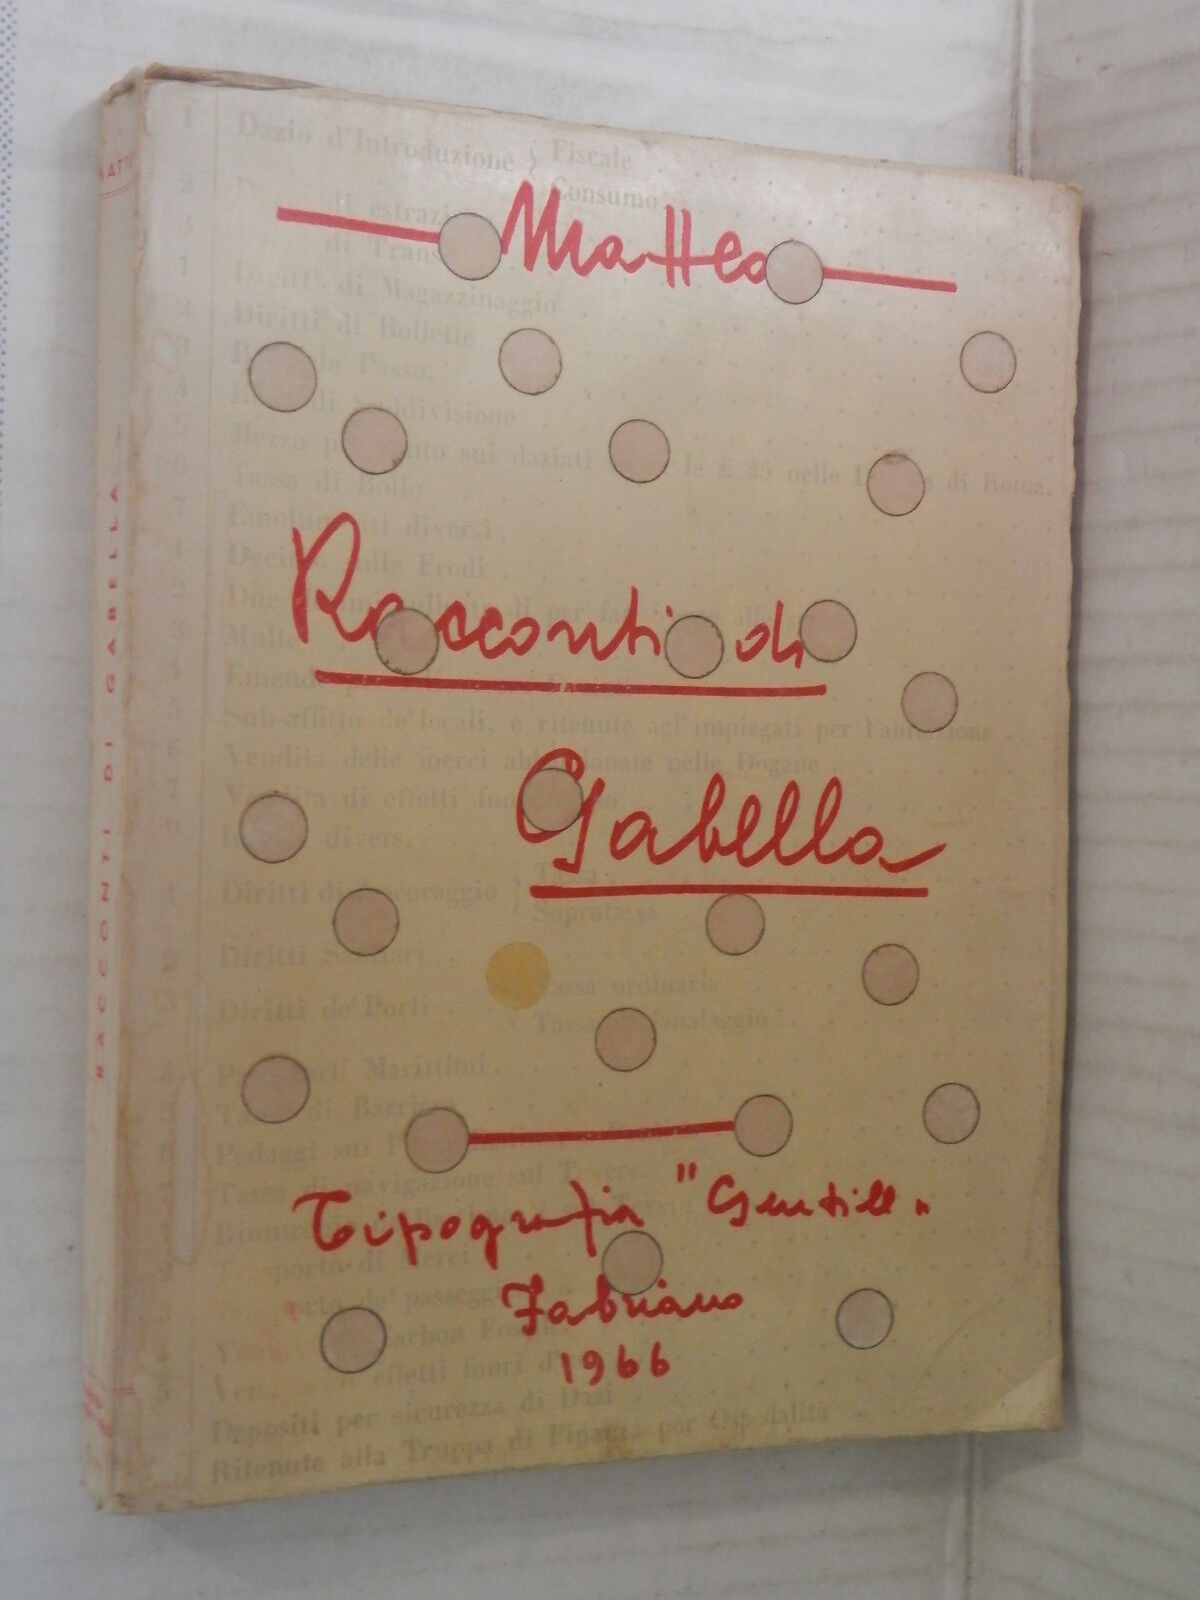 MATTEO
RACCONTI DI GABELLA
Matteo
Racconti di
Gabella
Tipografia "Gentile"
Fabriano
1966
1 Dazio d'Introduzione } Fiscale
Consumo
2 di estrazi
3 di Trans
1 Diritti di Magazzinaggio
2 Diritti di Bollette
3 Passo.
4 di Suddivisione
5 Mezzo per cento sui daziati le £ 25 nelle di Roma.
6 Tassa di Bollo
7 Emolumenti diversi
1 Decimo sulle Frodi
2 Due
3 Multe
4 Emende
5 Sub-affitto de' locali, e ritenute agl'impiegati per l'abitazione
6 Vendita delle merci abbandonate nelle Dogane
7 Vendita di effetti fuori
9 divers.
1 Diritti di Ancoraggio } Tassa
Sopratassa
2 Diritti Sanitari
3 Diritti de' Porti Tassa ordinari.
Tassa fanalaggio
4 Passaporti Marittimi.
5 Tassa di Barriera
6 Pedaggi sui
Tassa di navigazione sul Tevere.
porto di Merci
2 porto de' passegg
3 Carbon Foss
5 Ven effetti fuori d'
Depositi per sicurezza di Dazi
Ritenute alla Truppa di Finanza per Ospedalità